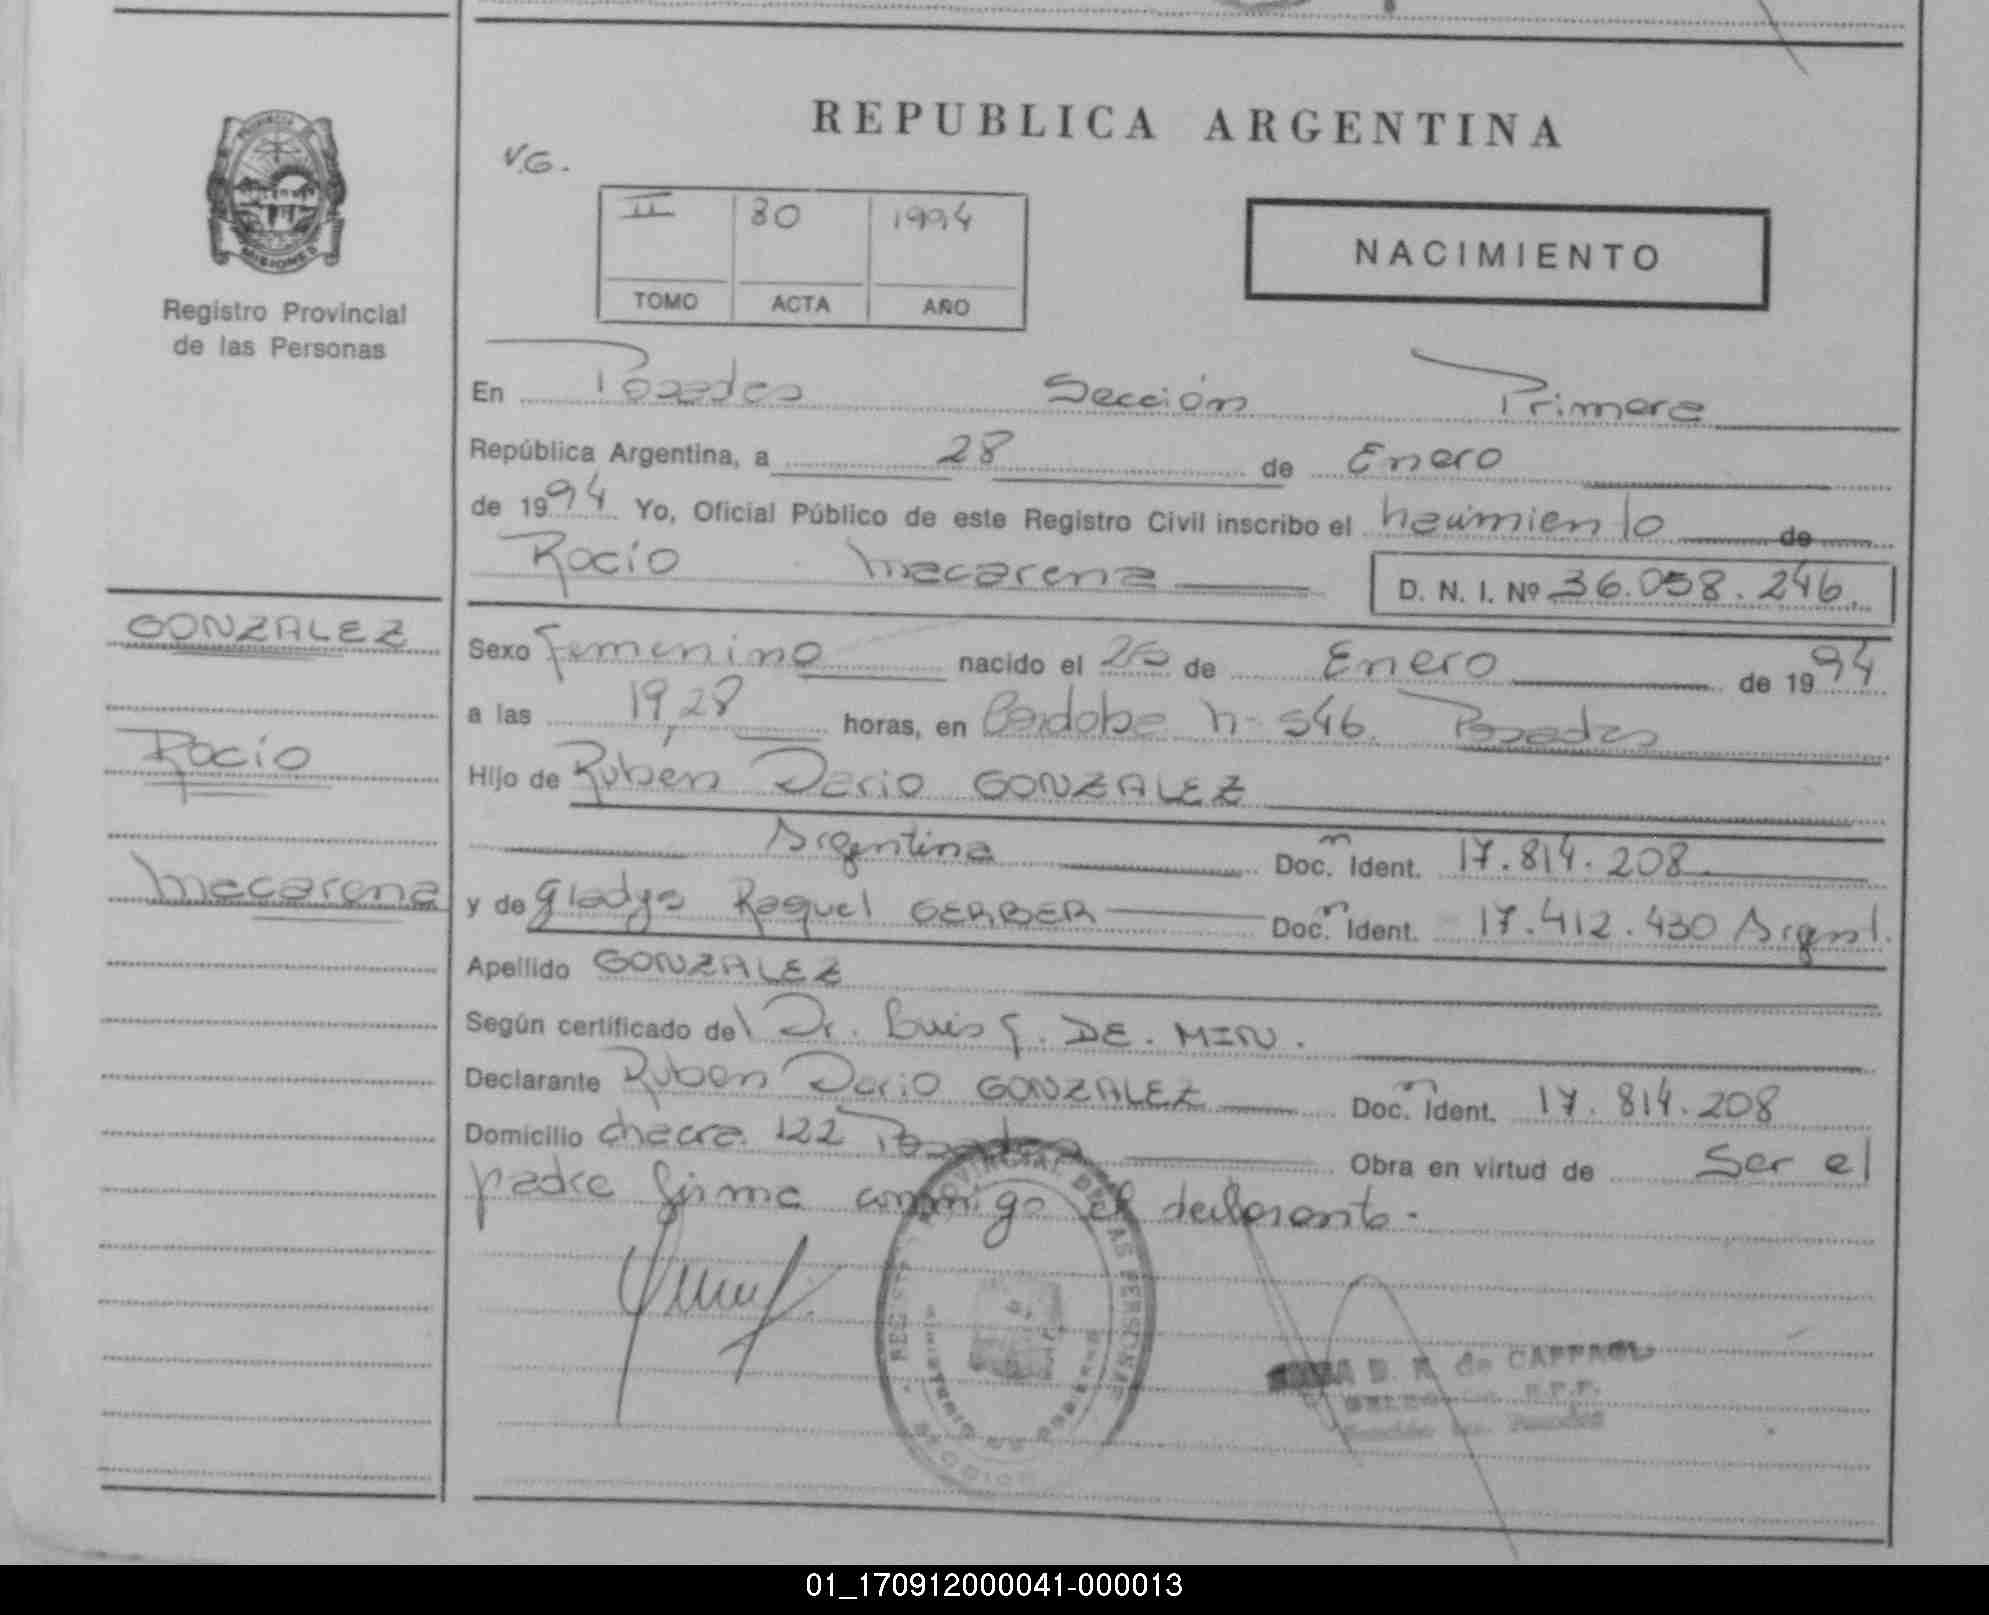 REPUBLICA ARGENTINA
V.G.
II 80 1994
TOMO ACTA AÑO
NACIMIENTO
PROVINCIA DE
MISIONES
Registro Provincial
de las Personas
En Posadas Sección Primera
República Argentina, a 28 de Enero
de 1994 Yo, Oficial Público de este Registro Civil inscribo el nacimiento de
Rocío Macarena D. N. I. Nº 36.058.246
GONZALEZ
Rocío
Macarena
Sexo Femenino nacido el 26 de Enero de 1994
a las 19,28 horas, en Córdoba n- 546. Posadas
Hijo de Rubén Dario GONZALEZ
Argentina Doc. Ident. 17.814.208
y de Gladys Raquel GERBER Doc. Ident. 17.412.430 Argent.
Apellido GONZALEZ
Según certificado del Dr. Luis F. DE. MIN.
Declarante Ruben Dario GONZALEZ Doc. Ident. 17.814.208
Domicilio chacra 122 Posadas Obra en virtud de Ser el
padre firma conmigo el declarante.
REGISTRO PROVINCIAL DE LAS PERSONAS
MINISTERIO DE GOBIERNO
B. R. de CAFFAOL
R.P.P.
01_170912000041-000013